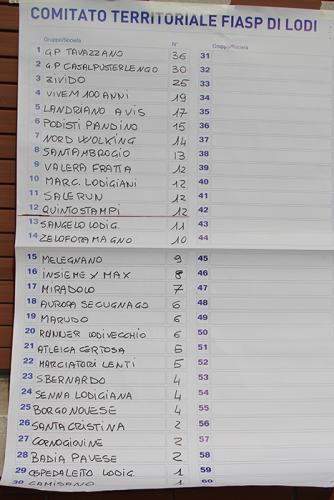 COMITATO TERRITORIALE FIASP DI LODI
Gruppo/Società N° Gruppo/Società
1 G.P TAVAZZANO 36 31
2 G.P CASALPUSTERLENGO 30 32
3 ZIVIDO 25 33
4 VIVEM 100 ANNI 19 34
5 LANDRIANO AVIS 17 35
6 PODISTI PANDINO 15 36
7 NORD WOLKING 14 37
8 SANTAMBROGIO 13 38
9 VALERA FRATTA 12 39
10 MARC. LODIGIANI 12 40
11 SALERUN 12 41
12 QUINTOSTAMPI 12 42
13 SANGELO LODIG. 11 43
14 ZELOFORAMAGNO 10 44
15 MELEGNANO 9 45
16 INSIEME X MAX 8 46
17 MIRADOLO 7 47
18 AURORA SECUGNAGO 6 48
19 MARUDO 6 49
20 RONNER LODIVECCHIO 6 50
21 ATLEICA CERTOSA 6 51
22 MARCIATORI LENTI 5 52
23 SBERNARDO 4 53
24 SENNA LODIGIANA 4 54
25 BORGONOVESE 4 55
26 SANTA CRISTINA 2 56
27 CORNOGIOVINE 2 57
28 BADIA PAVESE 2 58
29 OSPEDALETTO LODIG. 1 59
30 CAMISANO 1 60